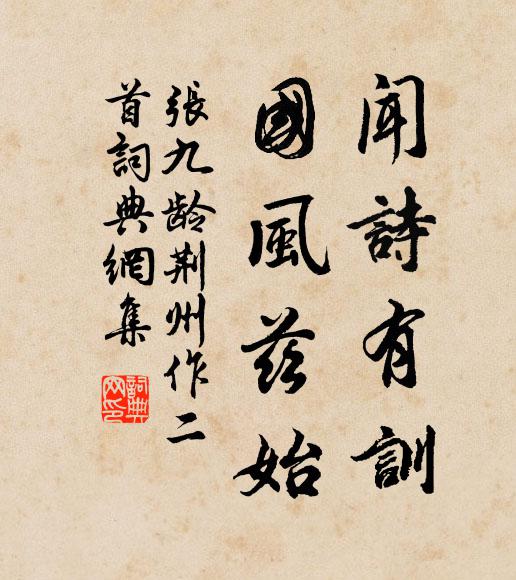 聞詩有訓
國風茲始
張九龄荆州作二
首詞典網集
詞典网印